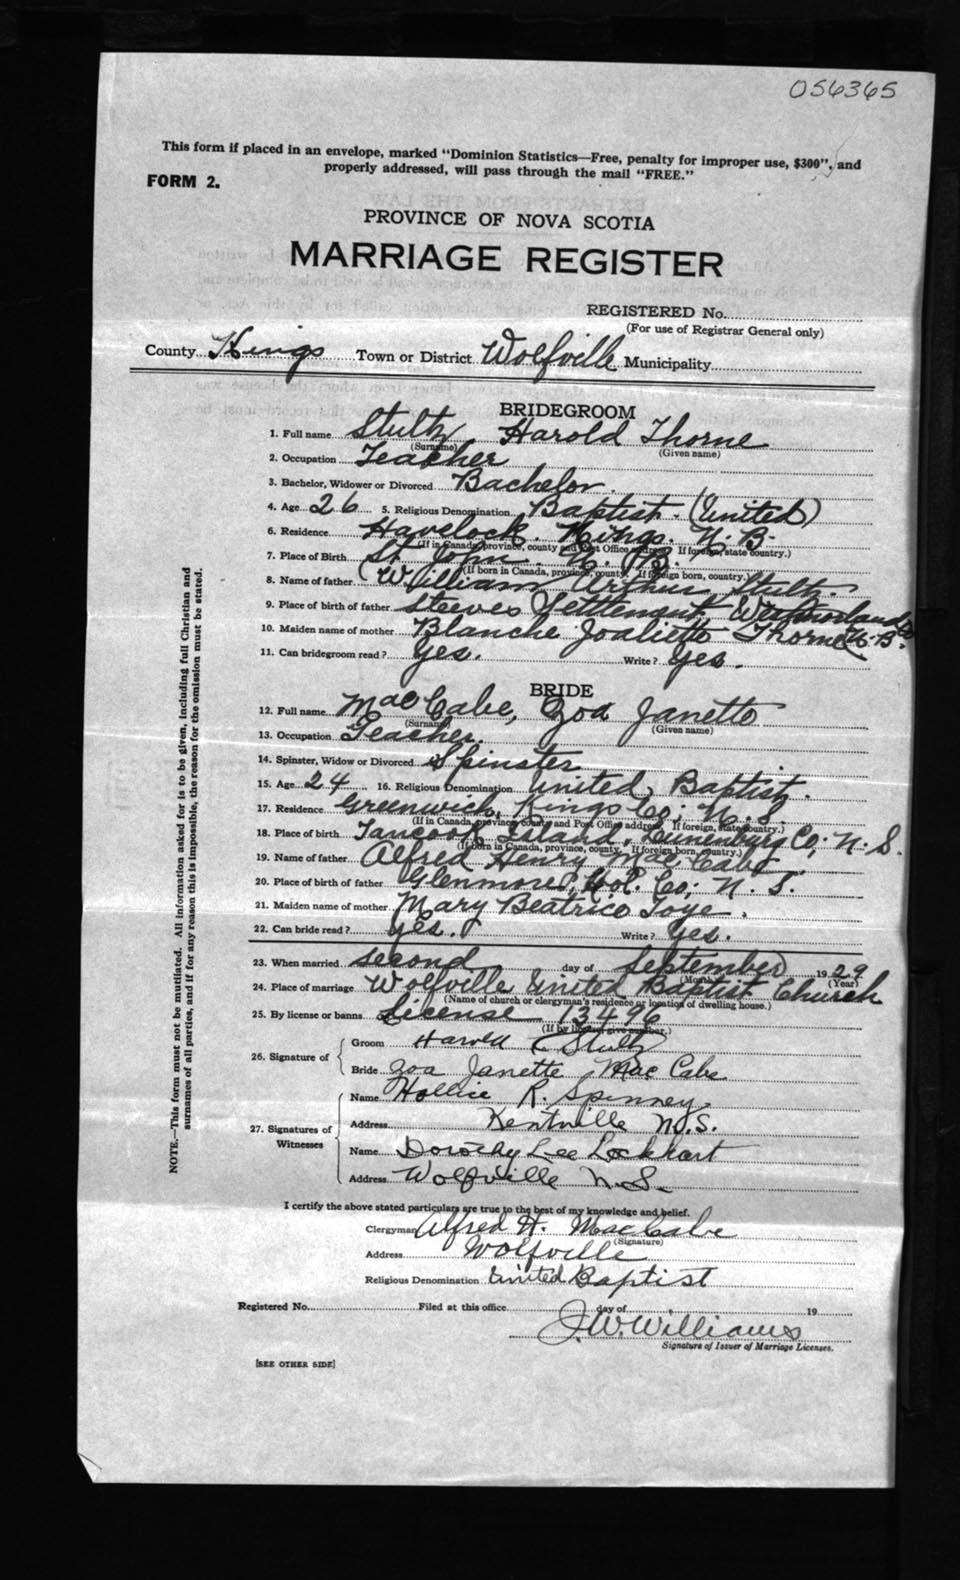 056365
This form if placed in an envelope, marked "Dominion Statistics—Free, penalty for improper use, $300", and
properly addressed, will pass through the mail "FREE."
FORM 2.
PROVINCE OF NOVA SCOTIA
MARRIAGE REGISTER
REGISTERED No.
(For use of Registrar General only)
County Kings Town or District Wolfville Municipality
BRIDEGROOM
1. Full name Stultz Harold Thorne
(Surname) (Given name)
2. Occupation Teacher
3. Bachelor, Widower or Divorced Bachelor.
4. Age 26 5. Religious Denomination Baptist. (United)
6. Residence Havelock. Kings. N.B.
(If in Canada, province, county and Post Office address. If foreign, state country.)
7. Place of Birth St. John. N. B.
(If born in Canada, province, county. If foreign born, country.)
8. Name of father William Arthur Stultz.
9. Place of birth of father Steeves Settlement, Westmorland Co
10. Maiden name of mother Blanche Thorne N.B.
11. Can bridegroom read? Yes. Write? Yes.
BRIDE
12. Full name MacCabe, Zoa Janette
(Surname) (Given name)
13. Occupation Teacher.
14. Spinster, Widow or Divorced Spinster
15. Age 24 16. Religious Denomination United Baptist.
17. Residence Greenwich, Kings Co; N.S.
(If in Canada, province, county and Post Office address. If foreign, state country.)
18. Place of birth Tancook Island, Lunenburg Co, N.S.
(If born in Canada, province, county. If foreign born, country.)
19. Name of father Alfred Henry MacCabe
20. Place of birth of father Glenmore, Col. Co; N.S.
21. Maiden name of mother Mary Beatrice Joye.
22. Can bride read? Yes. Write? Yes.
23. When married second day of September 1929
(Month) (Year)
24. Place of marriage Wolfville United Baptist Church
(Name of church or clergyman's residence or location of dwelling house.)
25. By license or banns License 13496
(If by license give number.)
26. Signature of
Groom Harold T Stultz
Bride Zoa Janette MacCabe
27. Signatures of Witnesses
Name Hollie R. Spinney
Address Kentville N.S.
Name Dorothy Lee Lockhart
Address Wolfville N.S.
I certify the above stated particulars are true to the best of my knowledge and belief.
Clergyman Alfred H. MacCabe
(Signature)
Address Wolfville
Religious Denomination United Baptist
Registered No. Filed at this office day of 19
J.W. Williams
Signature of Issuer of Marriage Licenses.
[SEE OTHER SIDE]
NOTE.—This form must not be mutilated. All information asked for is to be given, including full Christian and
surnames of all parties, and if for any reason this is impossible, the reason for the omission must be stated.